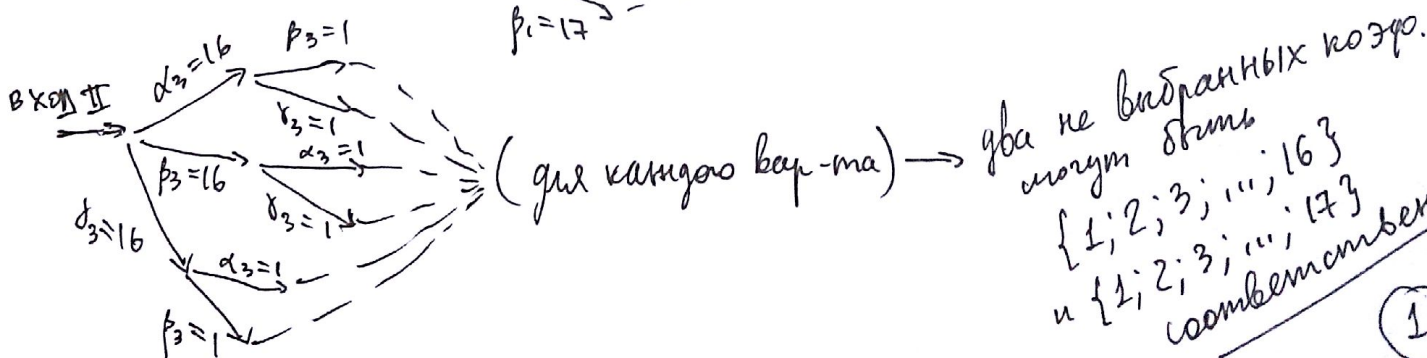 β₁=17
вход II
α₃=16
β₃=1
γ₃=1
β₃=16
α₃=1
γ₃=1
γ₃=16
α₃=1
β₃=1
(для каждого вар-та) →
два не выбранных коэф.
могут быть
{1; 2; 3; ...; 16}
и {1; 2; 3; ...; 17}
1